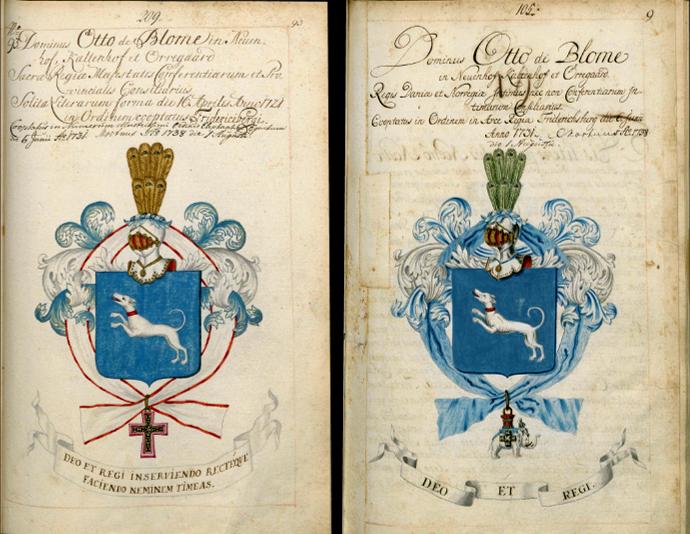 209.
93
93 Dominus Otto de Blome in Neuen-
hof, Kaltenhof et Orregaard
Sacræ Regiæ Majestatis Conferentiarum et Pro
vincialis Consiliarius
Solita Literarum forma die 16 Aprilis Anno 1721
in Ordinem cooptatus Fridericibergi.
Cooptatus in Numerum Illustrissimi Ordinis
die 6 Junii Ao 1731. Mortuus Ao 1738 die 1 Augusti
DEO ET REGI INSERVIENDO RECTÉQUE
FACIENDO NEMINEM TIMEAS.
105.
9
Dominus Otto de Blome
in Neuenhof, Kaltenhof et Orregaard.
Regis Daniæ et Norvegiæ Intimus nec non Conferentiarum
Consiliarius.
Cooptatus in Ordinem in Arce Regia Friderichsberg die 6 Junii
Anno 1731. Mortuus Ao 1738
die 1 Augusti.
DEO ET REGI.